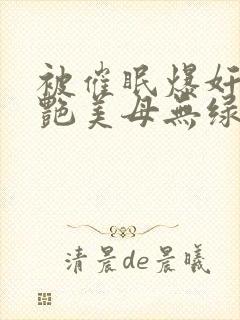 被催眠爆奸
艷美母無绿
清晨de晨曦